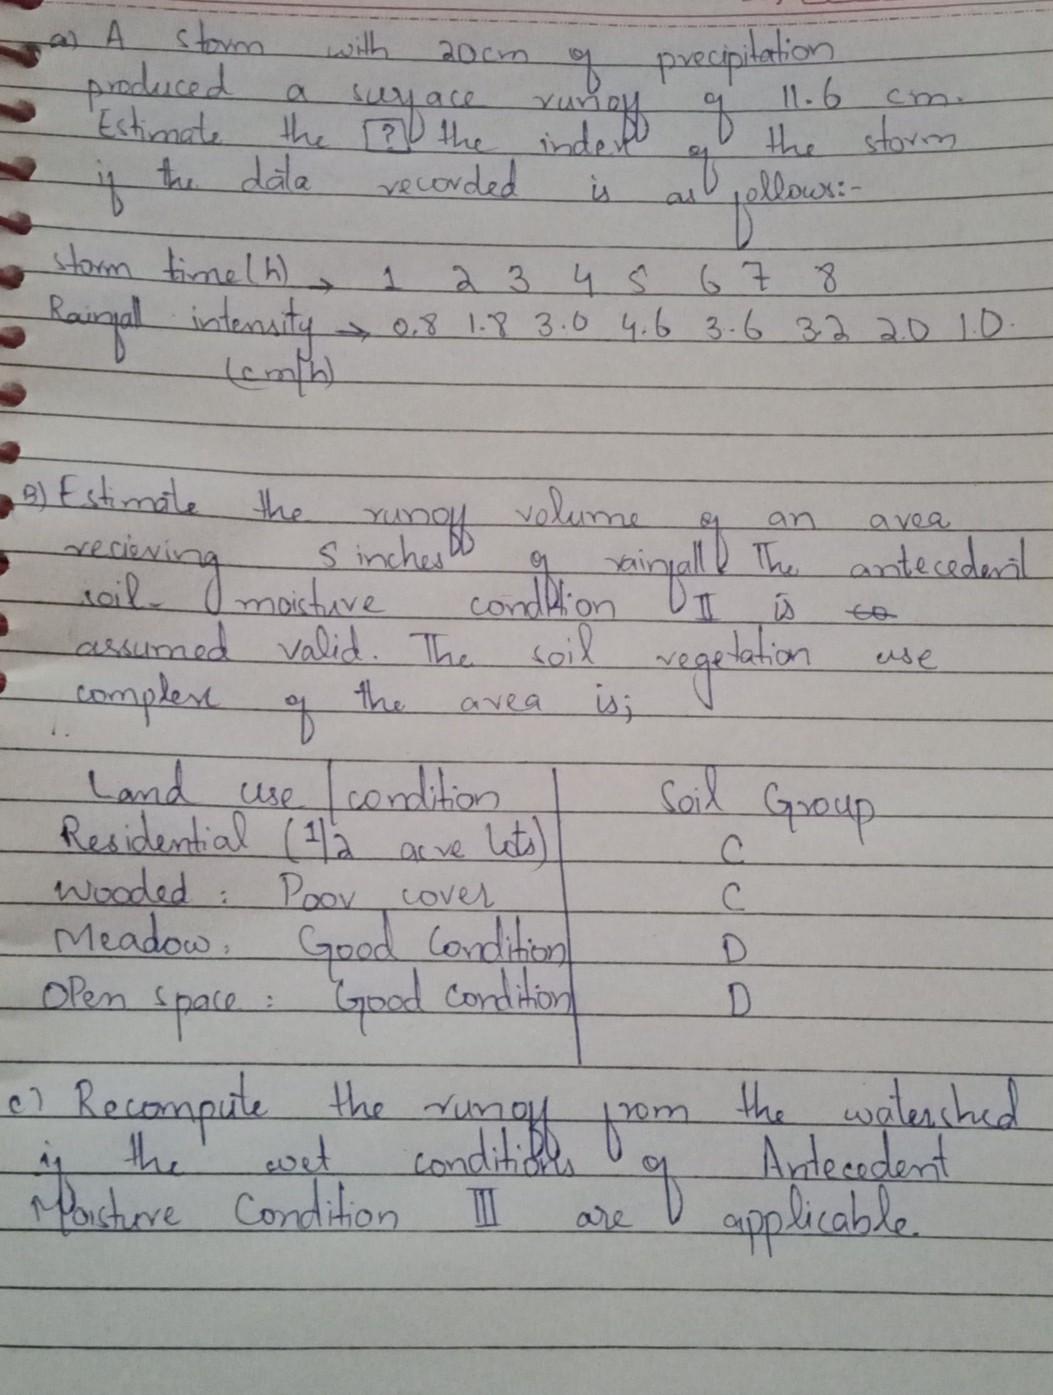 a) A storm with 20cm of precipitation
produced a surface runoff of 11.6 cm.
Estimate the [?] the index of the storm
if the data recorded is as follows:-
Storm time(h) → 1 2 3 4 5 6 7 8
Rainfall intensity → 0.8 1.8 3.0 4.6 3.6 3.2 2.0 1.0.
(cm/h)
B) Estimate the runoff volume of an area
recieving 5 inches of rainfall The antecedent
soil- moisture condition II is
assumed valid. The soil vegetation use
complex of the area is;
Land use / condition Soil Group
Residential (1/2 acre lots) C
Wooded : Poor cover C
Meadow: Good Condition D
Open space : Good condition D
c) Recompute the runoff from the watershed
if the wet conditions of Antecedent
Moisture Condition III are applicable.